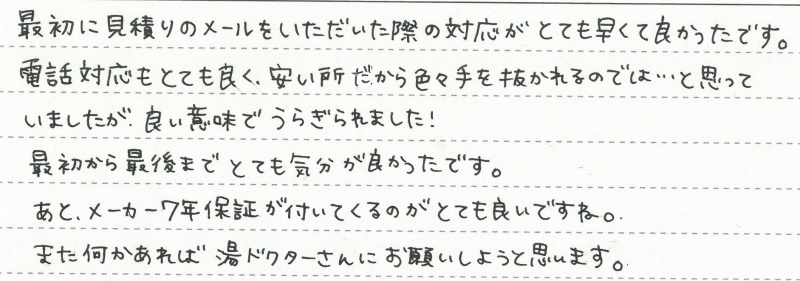 最初に見積りのメールをいただいた際の対応がとても早くて良かったです。
電話対応もとても良く、安い所だから色々手を抜かれるのでは…と思って
いましたが、良い意味でうらぎられました！
最初から最後までとても気分が良かったです。
あと、メーカー7年保証が付いてくるのがとても良いですね。
また何かあれば湯ドクターさんにお願いしようと思います。